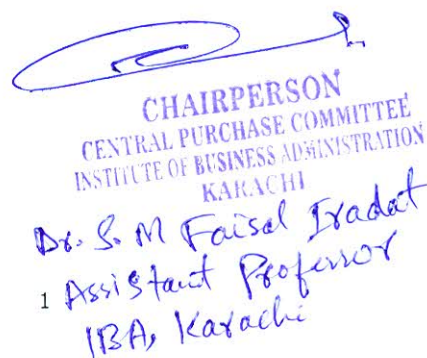 CHAIRPERSON
CENTRAL PURCHASE COMMITTEE
INSTITUTE OF BUSINESS ADMINISTRATION
KARACHI
Dr. S. M Faisal Iradat
1 Assistant Professor
IBA, Karachi